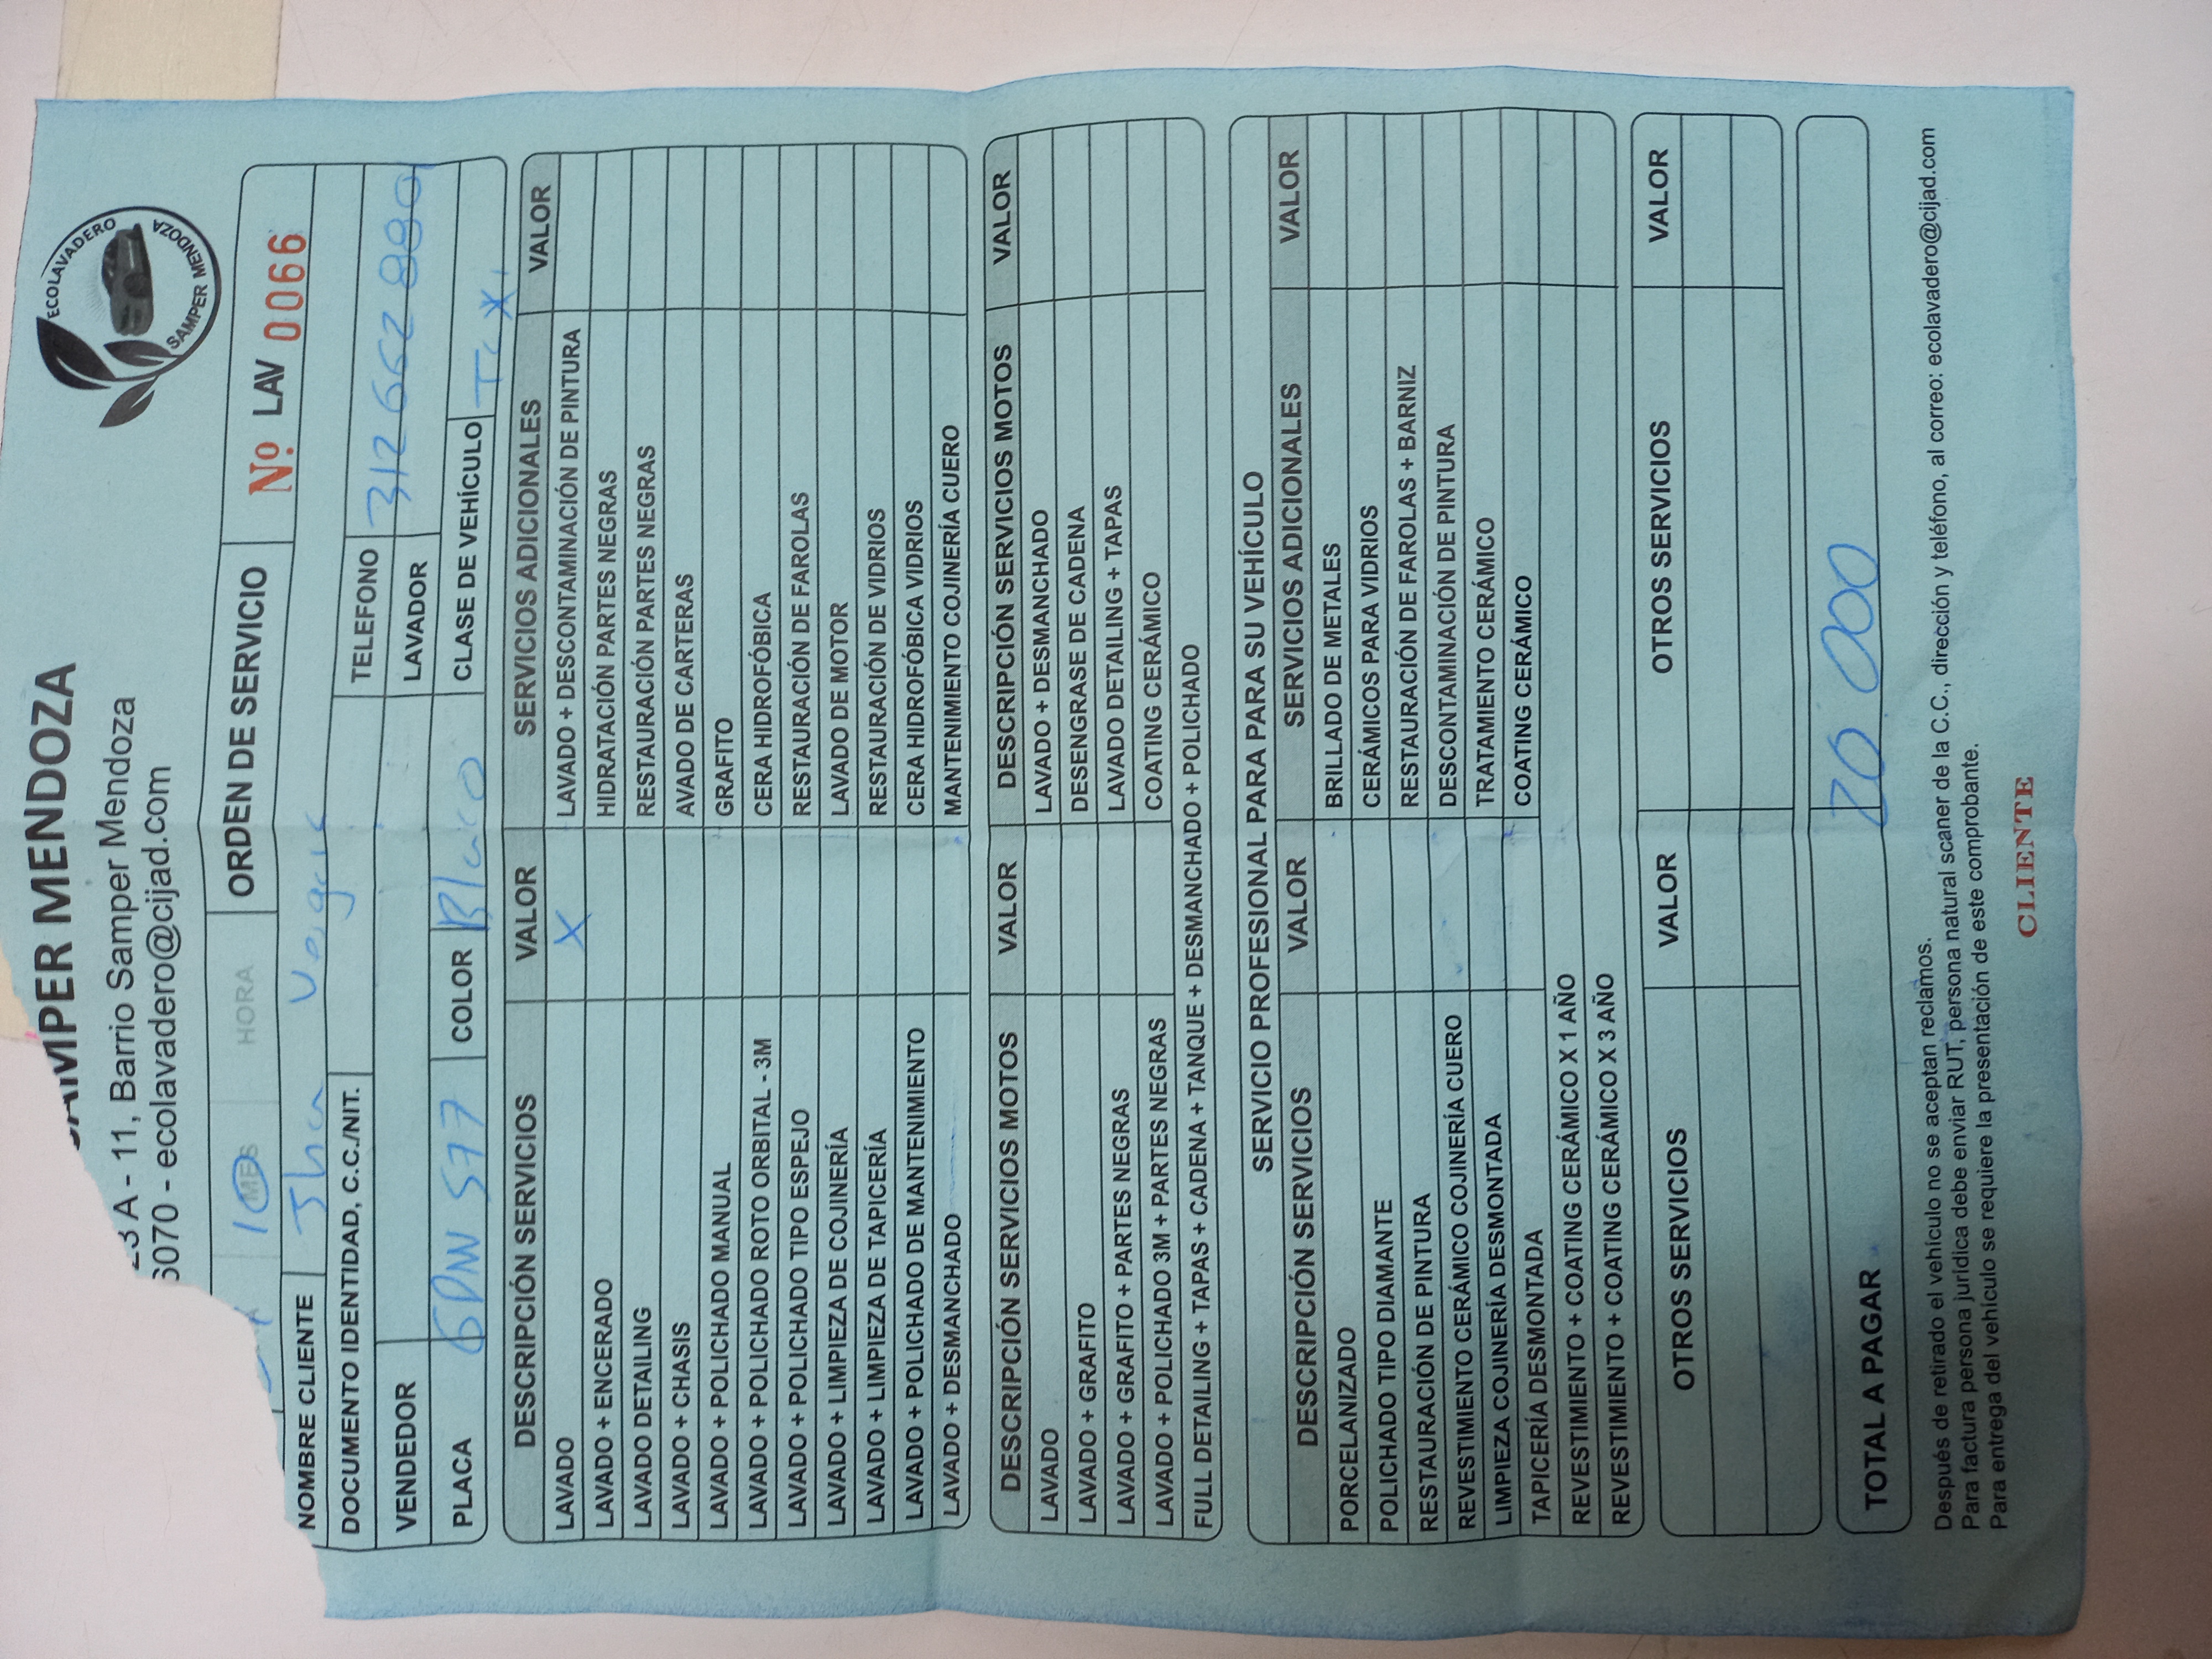 SAMPER MENDOZA
23 A - 11, Barrio Samper Mendoza
3070 - ecolavadero@cijad.com
ECOLAVADERO SAMPER MENDOZA
10 MES HORA ORDEN DE SERVICIO Nº LAV 0066
NOMBRE CLIENTE Jhn
DOCUMENTO IDENTIDAD, C.C./NIT. TELEFONO 312 662 8801
VENDEDOR LAVADOR
PLACA GDW 577 COLOR Blaco CLASE DE VEHÍCULO
DESCRIPCIÓN SERVICIOS VALOR SERVICIOS ADICIONALES VALOR
LAVADO X LAVADO + DESCONTAMINACIÓN DE PINTURA
LAVADO + ENCERADO HIDRATACIÓN PARTES NEGRAS
LAVADO DETAILING RESTAURACIÓN PARTES NEGRAS
LAVADO + CHASIS AVADO DE CARTERAS
LAVADO + POLICHADO MANUAL GRAFITO
LAVADO + POLICHADO ROTO ORBITAL - 3M CERA HIDROFÓBICA
LAVADO + POLICHADO TIPO ESPEJO RESTAURACIÓN DE FAROLAS
LAVADO + LIMPIEZA DE COJINERÍA LAVADO DE MOTOR
LAVADO + LIMPIEZA DE TAPICERÍA RESTAURACIÓN DE VIDRIOS
LAVADO + POLICHADO DE MANTENIMIENTO CERA HIDROFÓBICA VIDRIOS
LAVADO + DESMANCHADO MANTENIMIENTO COJINERÍA CUERO
DESCRIPCIÓN SERVICIOS MOTOS VALOR DESCRIPCIÓN SERVICIOS MOTOS VALOR
LAVADO LAVADO + DESMANCHADO
LAVADO + GRAFITO DESENGRASE DE CADENA
LAVADO + GRAFITO + PARTES NEGRAS LAVADO DETAILING + TAPAS
LAVADO + POLICHADO 3M + PARTES NEGRAS COATING CERÁMICO
FULL DETAILING + TAPAS + CADENA + TANQUE + DESMANCHADO + POLICHADO
SERVICIO PROFESIONAL PARA PARA SU VEHÍCULO
DESCRIPCIÓN SERVICIOS VALOR SERVICIOS ADICIONALES VALOR
PORCELANIZADO BRILLADO DE METALES
POLICHADO TIPO DIAMANTE CERÁMICOS PARA VIDRIOS
RESTAURACIÓN DE PINTURA RESTAURACIÓN DE FAROLAS + BARNIZ
REVESTIMIENTO CERÁMICO COJINERÍA CUERO DESCONTAMINACIÓN DE PINTURA
LIMPIEZA COJINERÍA DESMONTADA TRATAMIENTO CERÁMICO
TAPICERÍA DESMONTADA COATING CERÁMICO
REVESTIMIENTO + COATING CERÁMICO X 1 AÑO
REVESTIMIENTO + COATING CERÁMICO X 3 AÑO
OTROS SERVICIOS VALOR OTROS SERVICIOS VALOR
TOTAL A PAGAR 20 000
Después de retirado el vehículo no se aceptan reclamos.
Para factura persona jurídica debe enviar RUT, persona natural scaner de la C.C., dirección y teléfono, al correo: ecolavadero@cijad.com
Para entrega del vehículo se requiere la presentación de este comprobante.
CLIENTE